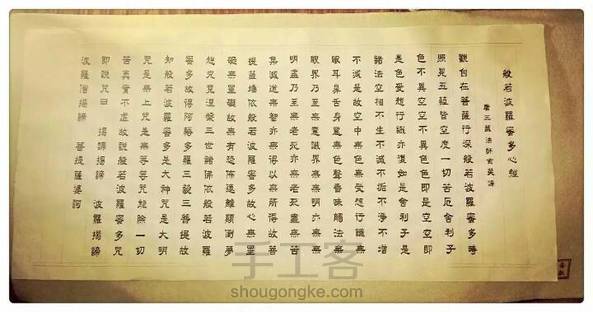 般若波羅蜜多心經
唐三藏法師玄奘譯
觀自在菩薩行深般若波羅蜜多時
照見五蘊皆空度一切苦厄舍利子
色不異空空不異色色即是空空即
是色受想行識亦復如是舍利子是
諸法空相不生不滅不垢不淨不增
不減是故空中無色無受想行識無
眼耳鼻舌身意無色聲香味觸法無
眼界乃至無意識界無無明亦無無
明盡乃至無老死亦無老死盡無苦
集滅道無智亦無得以無所得故菩
提薩埵依般若波羅蜜多故心無罣
礙無罣礙故無有恐怖遠離顛倒夢
想究竟涅槃三世諸佛依般若波羅
蜜多故得阿耨多羅三藐三菩提故
知般若波羅蜜多是大神咒是大明
咒是無上咒是無等等咒能除一切
苦真實不虛故說般若波羅蜜多咒
即說咒曰 揭諦揭諦 波羅揭諦
波羅僧揭諦 菩提薩婆訶
手工客
shougongke.com